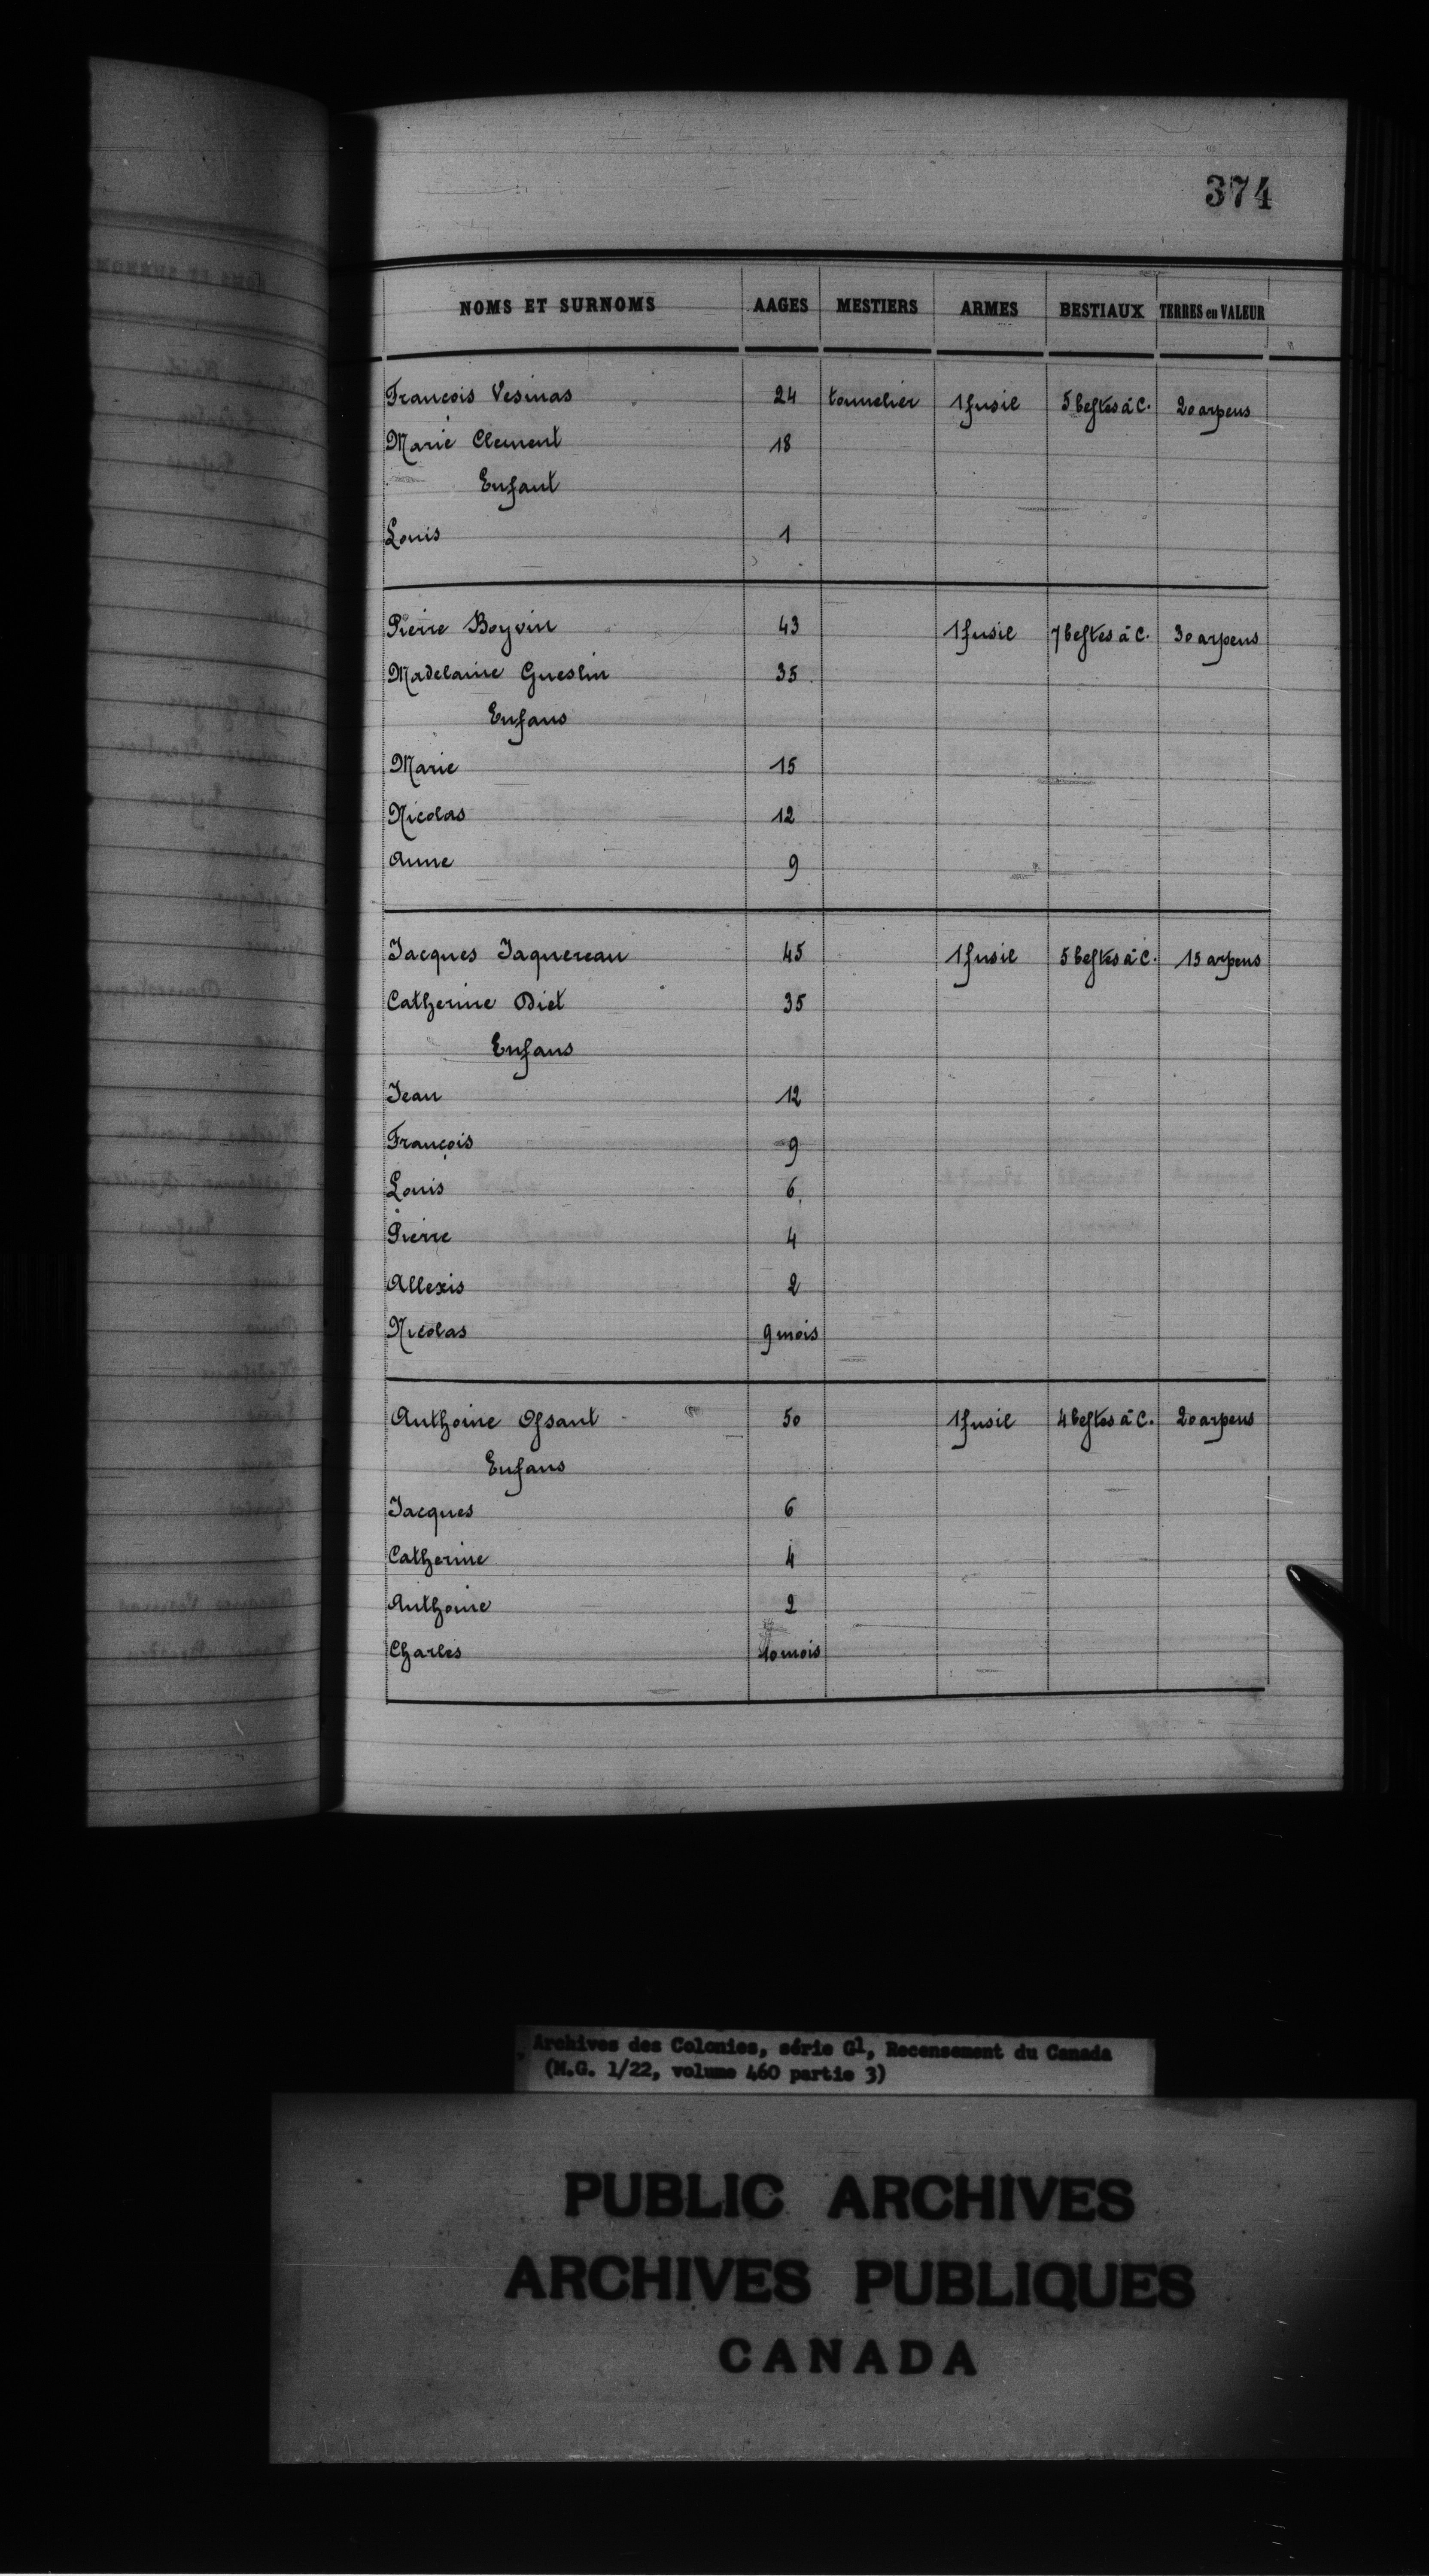 374
NOMS ET SURNOMS AAGES MESTIERS ARMES BESTIAUX TERRES en VALEUR
Francois Vesinas 24 tonnelier 1 fusil 5 bestes à C. 20 arpens
Marie Clement 18
Enfant
Louis 1
Pierre Boyvin 43 1 fusil 7 bestes à C. 30 arpens
Madelaine Gueslin 35
Enfans
Marie 15
Nicolas 12
Anne 9
Jacques Jaquereau 45 1 fusil 5 bestes à C. 15 arpens
Catherine Diet 35
Enfans
Jean 12
François 9
Louis 6
Pierre 4
Allexis 2
Nicolas 9 mois
Anthoine Ossant 50 1 fusil 4 bestes à C. 20 arpens
Enfans
Jacques 6
Catherine 4
Anthoine 2
Charles 10 mois
Archives des Colonies, série G1, Recensement du Canada
(M.G. 1/22, volume 460 partie 3)
PUBLIC ARCHIVES
ARCHIVES PUBLIQUES
CANADA